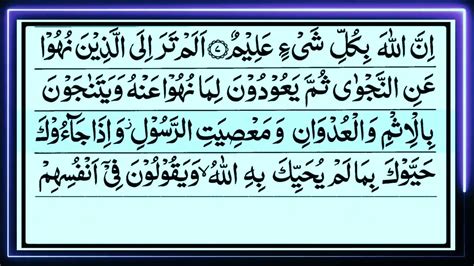 اِنَّ اللّٰهَ بِكُلِّ شَیْءٍ عَلِیْمٌ ﴿۷﴾ اَلَمْ تَرَ اِلَی الَّذِیْنَ نُهُوْا
عَنِ النَّجْوٰی ثُمَّ یَعُوْدُوْنَ لِمَا نُهُوْا عَنْهُ وَیَتَنٰجَوْنَ
بِالْاِثْمِ وَالْعُدْوَانِ وَمَعْصِیَتِ الرَّسُوْلِ ز وَاِذَا جَآءُوْكَ
حَیَّوْكَ بِمَا لَمْ یُحَیِّكَ بِهِ اللّٰهُ ۙ وَیَقُوْلُوْنَ فِیْۤ اَنْفُسِهِمْ